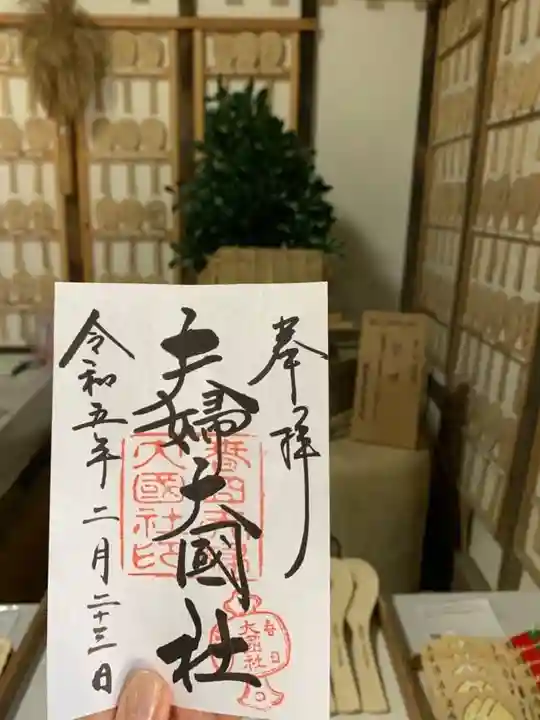 奉拝
夫婦大國社
令和五年二月二十三日
大國社印
春日
大國社